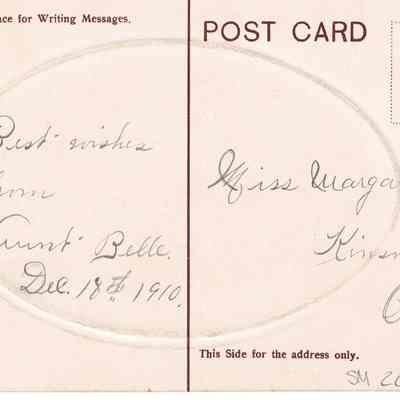 ace for Writing Messages.
POST CARD
Best wishes
from
Aunt Belle.
Dec. 18th 1910.
Miss Marga
Kinsm
O
This Side for the address only.
SM 20